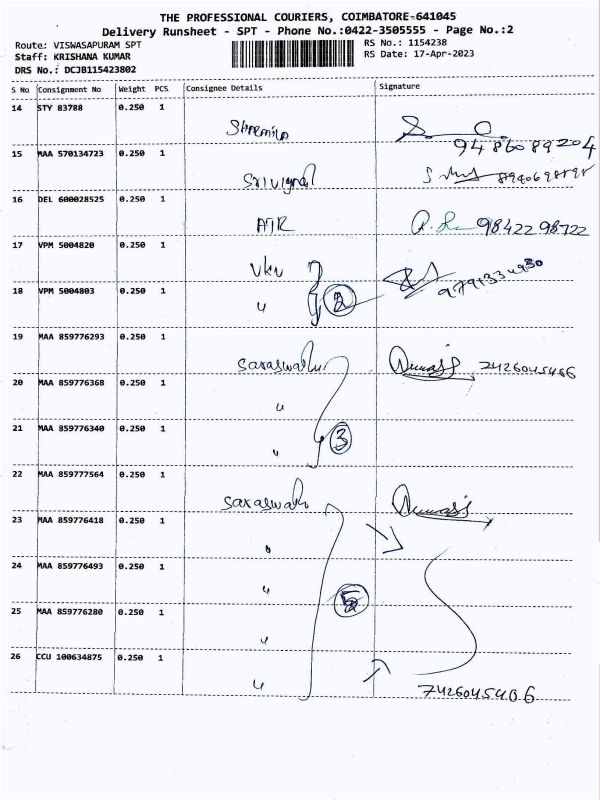 THE PROFESSIONAL COURIERS, COIMBATORE-641045
Delivery Runsheet - SPT - Phone No.:0422-3505555 - Page No.:2
Route: VISWASAPURAM SPT
RS No.: 1154238
Staff: KRISHANA KUMAR
RS Date: 17-Apr-2023
DRS No.: DCJB115423802
S No Consignment No Weight PCS Consignee Details Signature
14 STY 83788 0.250 1
9486089204
15 MAA 570134723 0.250 1
16 DEL 600028525 0.250 1
ATR 98422 98722
17 VPM 5004820 0.250 1
VKV
18 VPM 5004803 0.250 1
" 2
19 MAA 859776293 0.250 1
Saraswathi
20 MAA 859776368 0.250 1
"
21 MAA 859776340 0.250 1
" 3
22 MAA 859777564 0.250 1
Saraswathi
23 MAA 859776418 0.250 1
"
24 MAA 859776493 0.250 1
"
25 MAA 859776280 0.250 1
" 5
26 CCU 100634875 0.250 1
"
7426045406